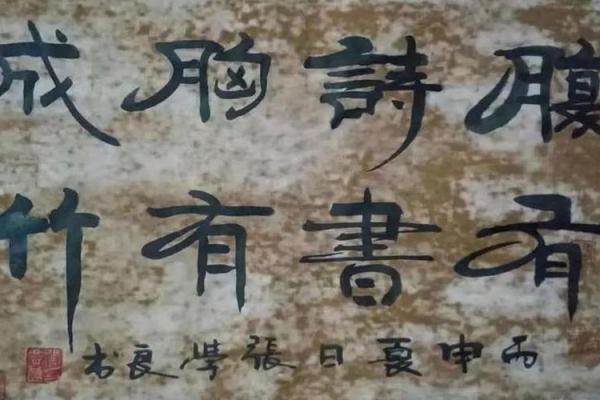 腹有
詩書
胸有
成竹
丙申夏日張學良书